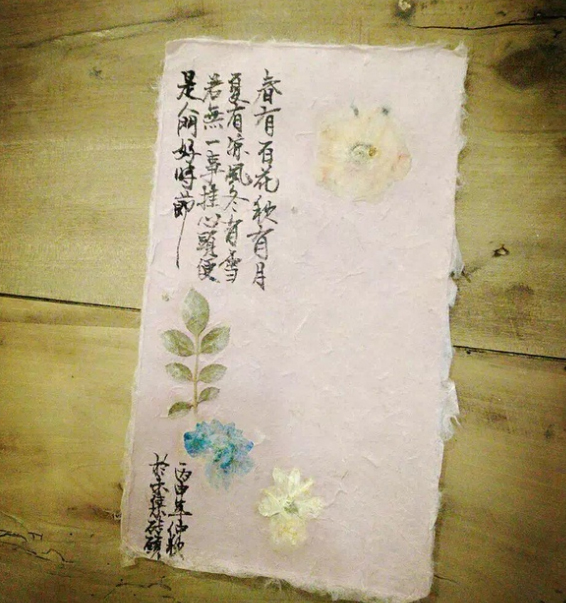 春有百花秋有月
夏有凉風冬有雪
若無一事挂心頭便
是人間好時節
丙申年仲秋
於